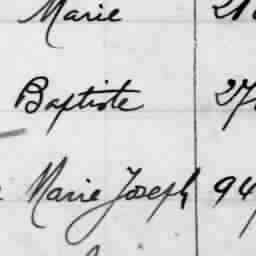 Marie
Baptiste 27
Marie Joseph 94